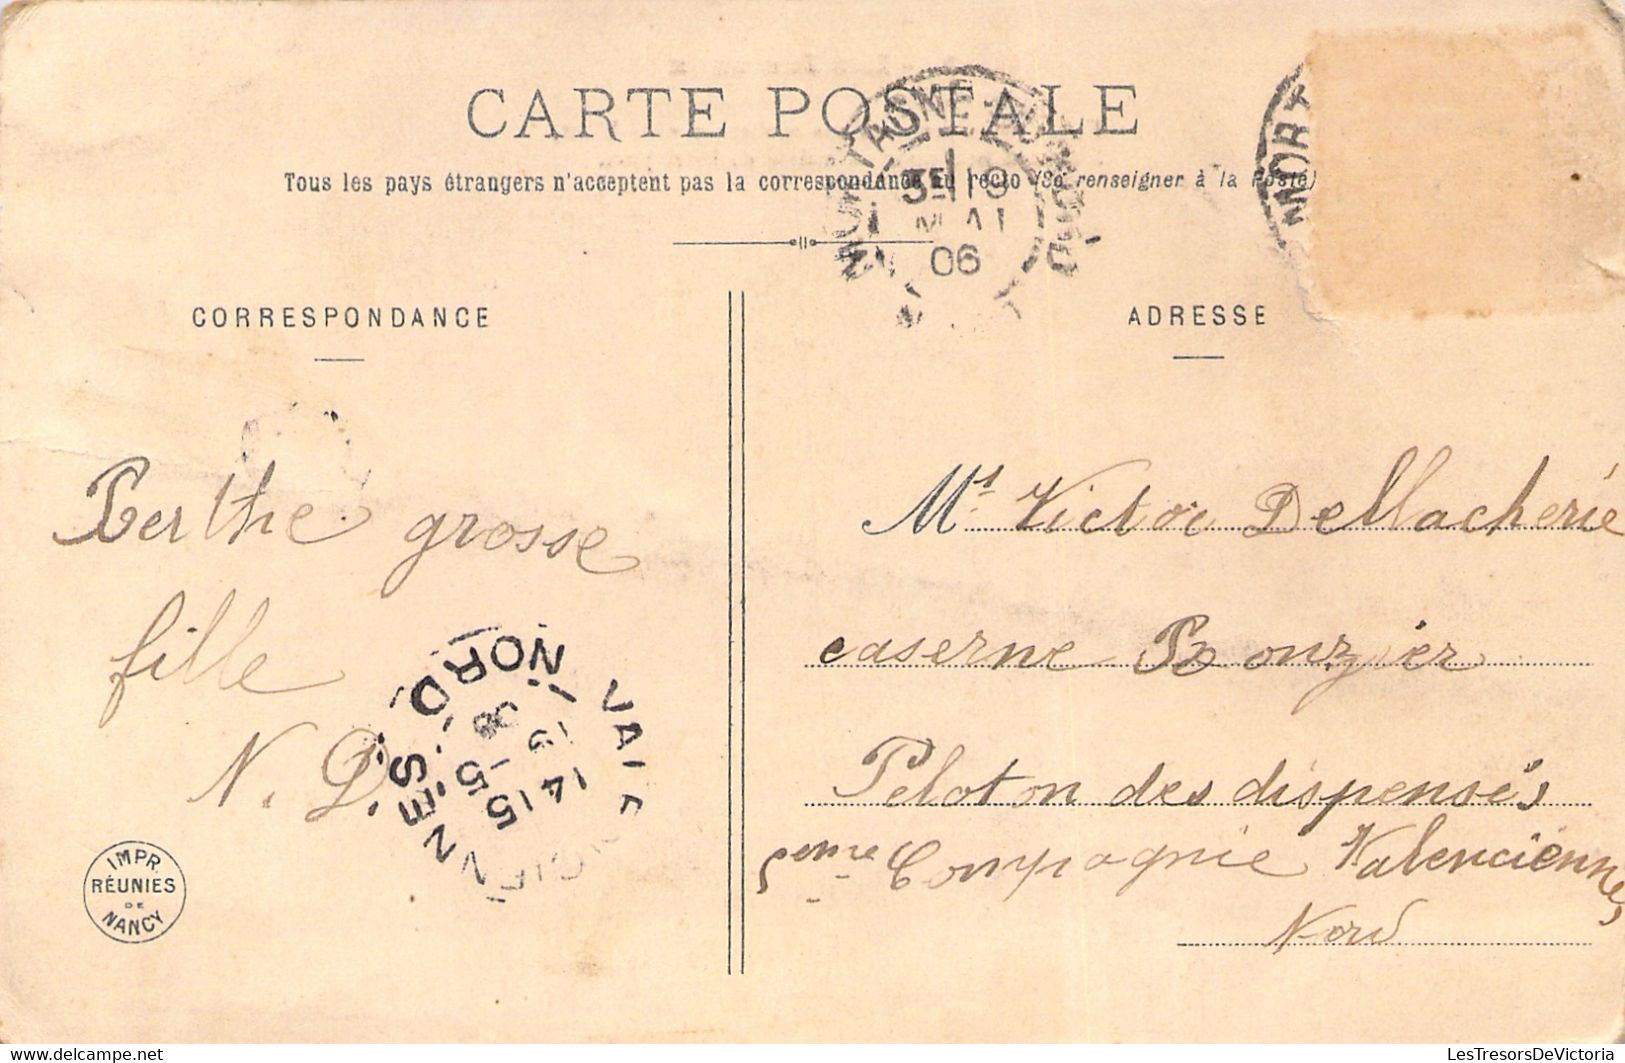 CARTE POSTALE
Tous les pays étrangers n'acceptent pas la correspondance au recto (Se renseigner à la Poste)
3E 19
MAI
06
CORRESPONDANCE
ADRESSE
Berthe grosse
fille
N. D.
Mr. Victor Dellacherie
caserne Ronzier
Peloton des dispensés
5eme Compagnie Valenciennes
Nord
VALENCIENNES
NORD
14 15
19 -5
06
IMPR.
RÉUNIES
DE
NANCY
Delcampe.net
LesTresorsDeVictoria